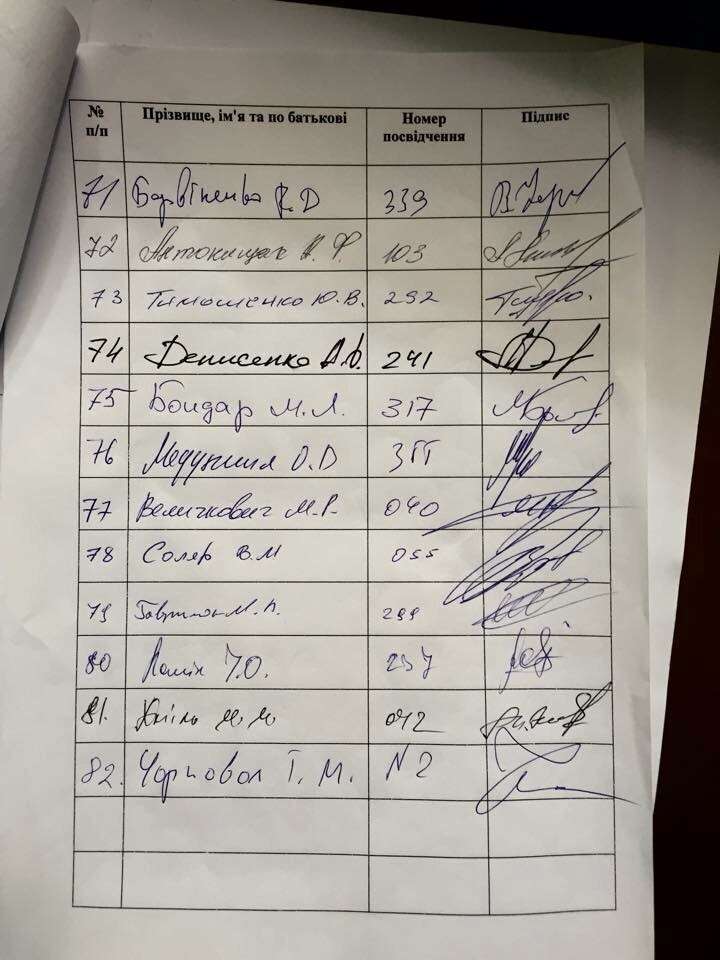 № п/п Прізвище, ім'я та по батькові Номер посвідчення Підпис
71 Барвіненко В.Д 339
72 Антонищак А.Ф. 103
73 Тимошенко Ю.В. 292
74 Денисенко А.С. 241
75 Бондар М.Л. 317
76 О.D 355
77 Величкович М.Р. 040
78 Соляр В.М 055
79 М.П. 299
80 І.О. 237
81. М.М 042
82. Чорновол Т.М. N2